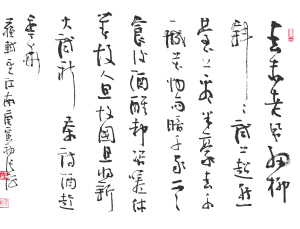 春未老風細柳
斜斜試上超然
臺上看半壕春水
一城花烟雨暗千家寒
食後酒醒却咨嗟休
對故人思故國且將新
火試新茶詩酒趁
年華
蘇軾望江南